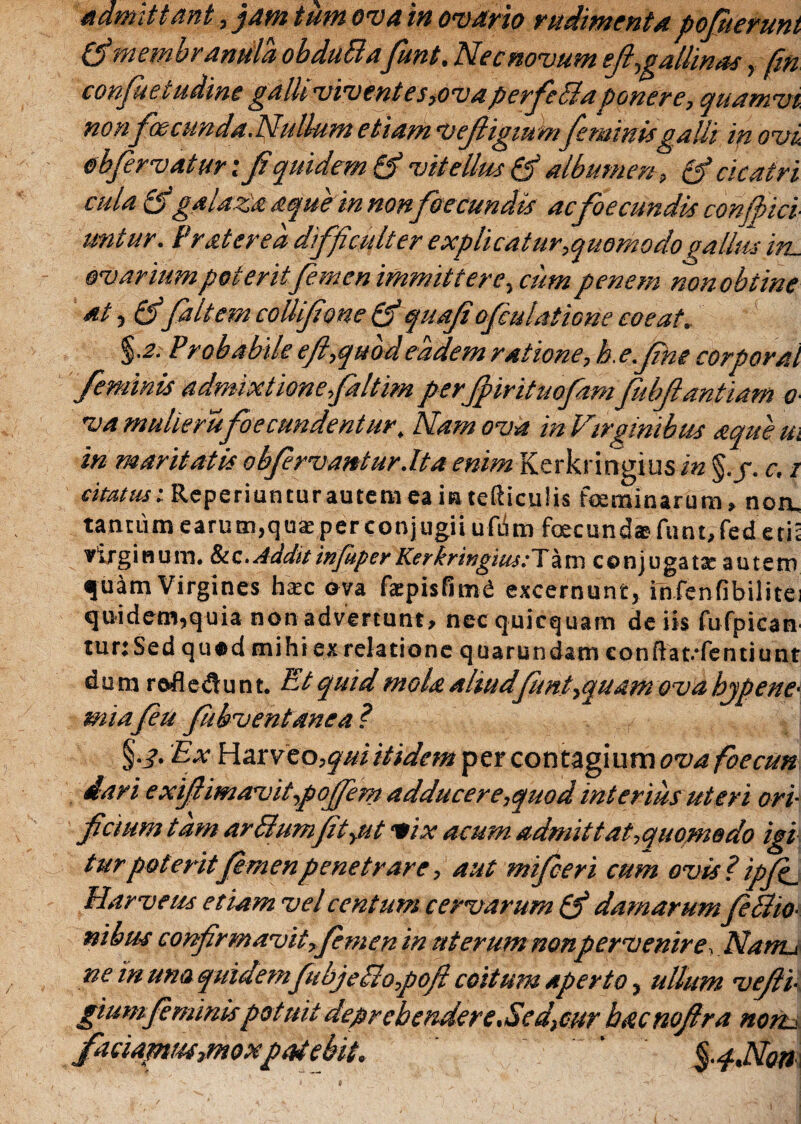 admittant, jam tùm ova in ovario rudimenta posuerunt
& membranulâ obducta sunt. Nec novum est, gallinas, sin
consuetudine galli viventes, ova perfecta ponere, quamvi
non fœcunda. Nullum etiam vestigium seminis galli in ovi
observatur: siquidem & vitellus & albumen, & cicatri
cula & galaza æquè in non foecundis ac foecundis conspici-
untur. Prætereà difficulter explicatur, quomodo gallus in
ovarium poterit semen immittere, cùm penem non obtine
at, & saltem collisione & quasi osculatione coeat.
§.2. Probabile est, quòd eâdem ratione, h.e. sine corporal
seminis admixtione, saltim per spirituosam substantiam o-
va mulierū foecundentur. Nam ova in Virginibus æquè ut
in maritatis observantur. Ita enim Kerkringius in §.5. c. 1
citatus: Reperiuntur autem ea in testiculis fœminarum, non
tantùm earum, quæ per conjugii usum fœcundæ sunt, sed etiã
virginum. &c. Addit insuper Kerkringius: Tàm conjugatæ autem
quàm Virgines hæc ova sæpissimè excernunt, insensibiliter
quidem, quia non advertunt, nec quicquam de iis suspican-
tur: Sed quod mihi ex relatione quarundam constat: sentiunt
dum reflectunt. Et quid molæ aliud sunt, quam ova hypene-
mia seu subventanea?
§.3. Ex Harveo, qui itidem per contagium ova foecun
dari existimavit, possem adducere, quod interiùs uteri ori-
ficium tàm arctum sit, ut vix acum admittat, quomodo igi
tur poterit semen penetrare, aut misceri cum ovis? ipse
Harveus etiam vel centum cervarum & damarum sectio-
nibus confirmavit, semen in uterum non pervenire. Nam
ne in uno quidem subjecto, post coitum aperto, ullum vesti-
gium seminis potuit deprehendere. Sed, cur hæc nostra non
faciamus, mox patebit.
§.4. Non